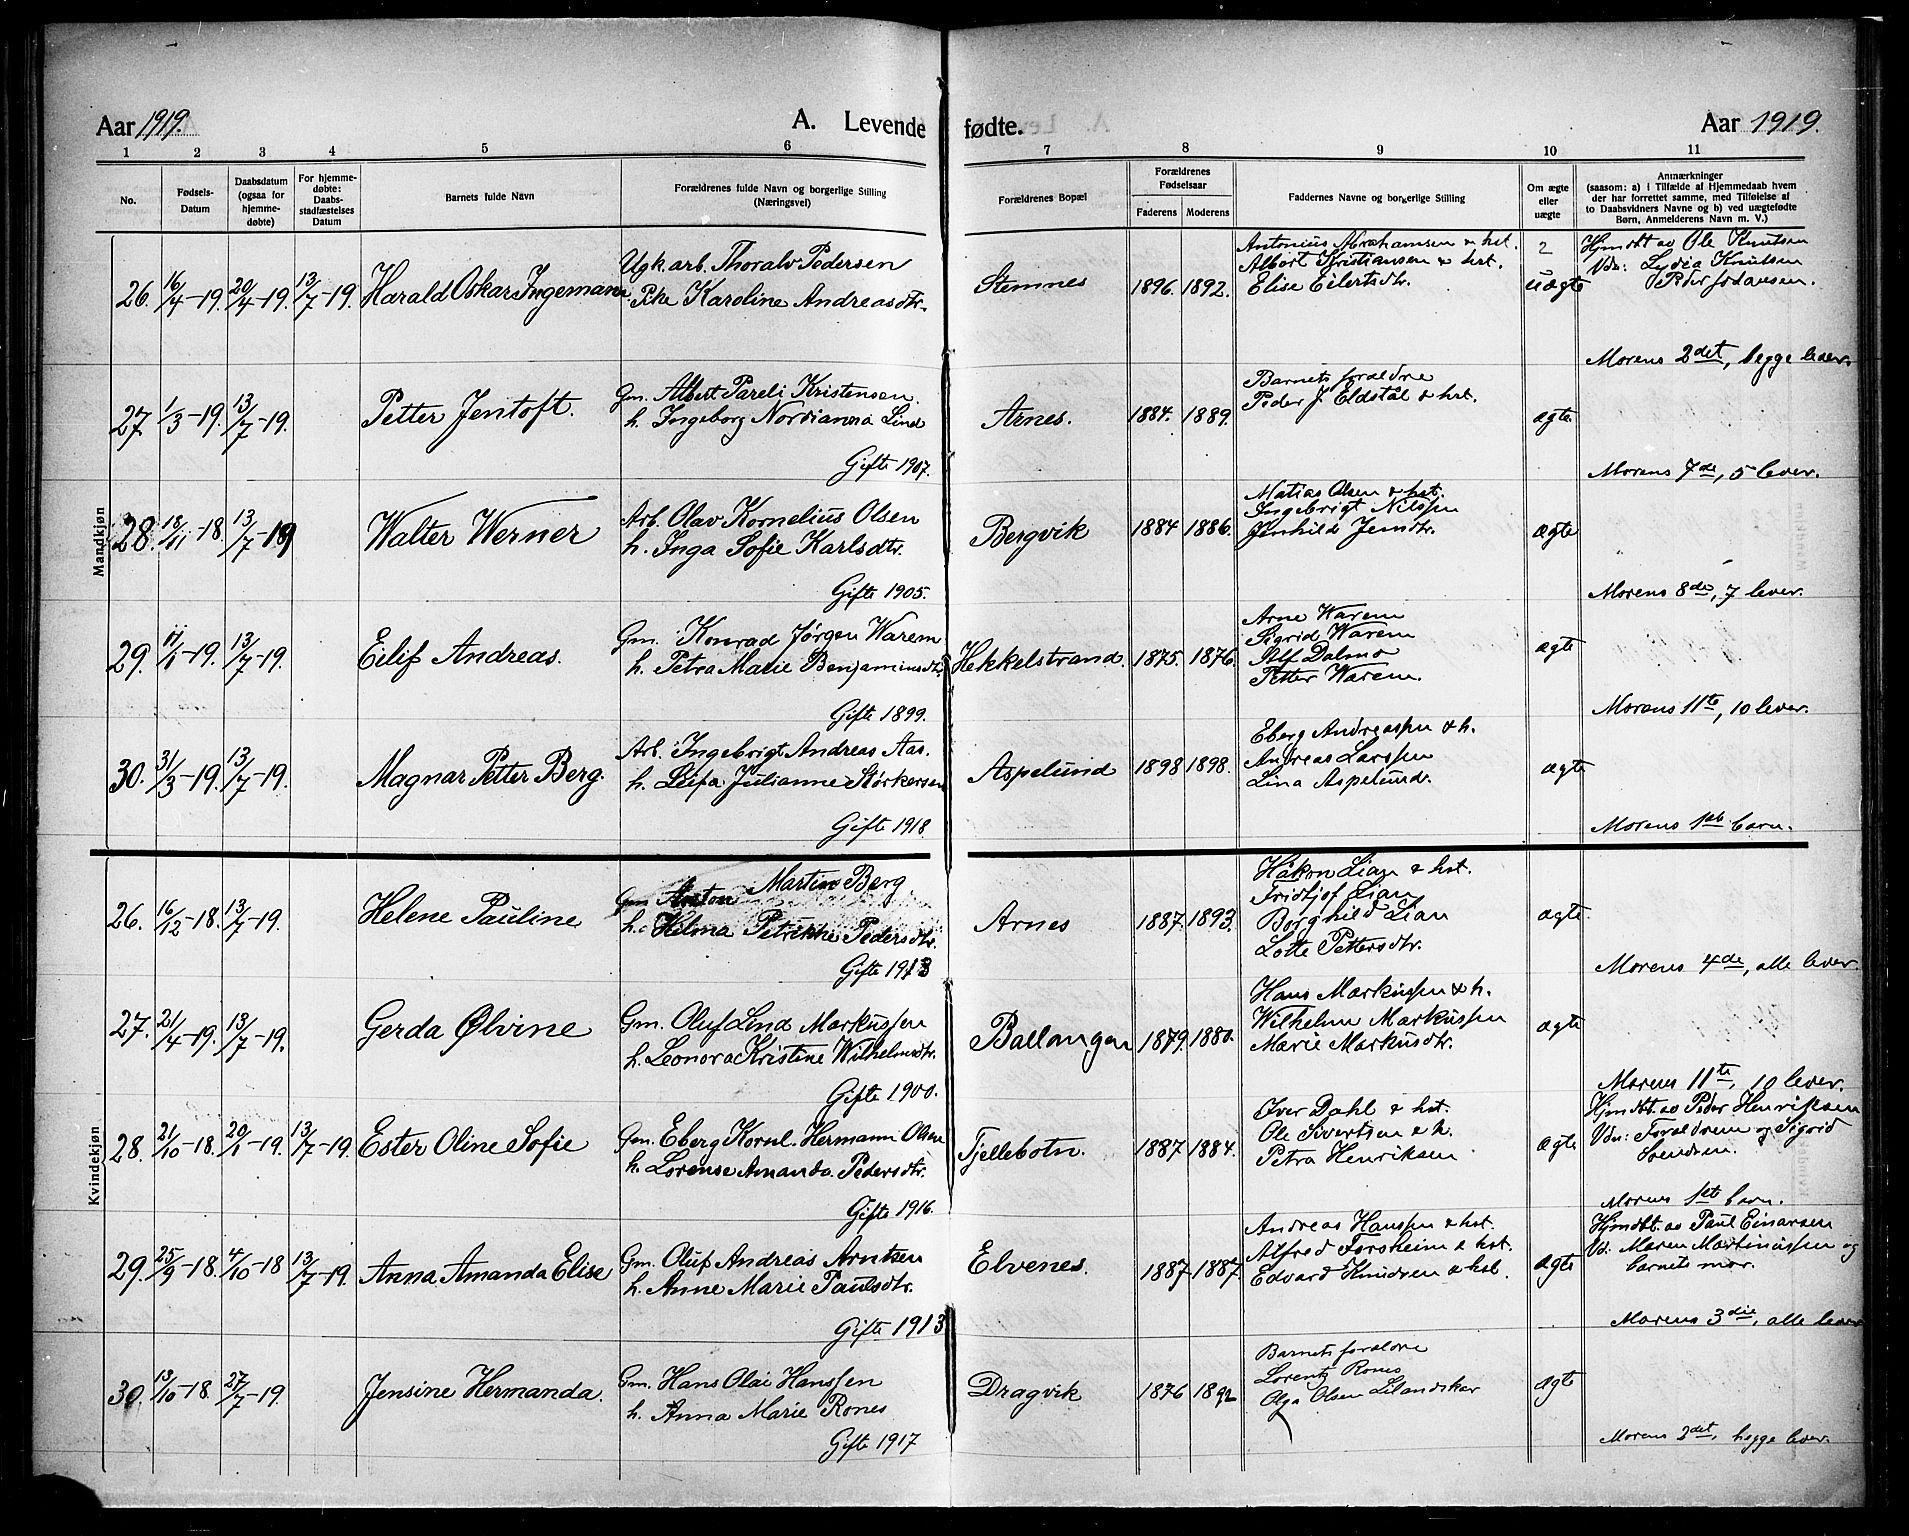 Aar 1919.
A. Levende fødte.
Aar 1919.
1 2 3 4 5 6 7 8 9 10 11
No.
Fødsels-
Datum
Daabsdatum
(ogsaa for
hjemme-
døbte)
For hjemme-
døbte:
Daabs-
stadfæstelses
Datum
Barnets fulde Navn
Forældrenes fulde Navn og borgerlige Stilling
(Næringsvei)
Forældrenes Bopæl
Forældrenes
Fødselsaar
Faderens Moderens
Faddernes Navne og borgerlige Stilling
Om ægte
eller
uægte
Anmærkninger
(saasom: a) i Tilfælde af Hjemmedaab hvem
der har forrettet samme, med Tilføielse af
to Daabsvidners Navne og b) ved uægtefødte
Børn, Anmelderens Navn m. V.)
Mandkjøn
26. 16/4-19. 20/4-19. 13/7-19. Harald Oskar Ingemann
Ugk. arb. Thoralv Pedersen
Pike Karoline Andreasdtr.
Stemnes 1896. 1892.
Antonius Abrahamsen & hst.
Albert Kristiansen & hst.
Elise Eilertsdtr.
2
uægte
Hjmdbt av Ole Knutsen
Vdn: Lydia Knutsen
Peder Johansen.
Morens 2det, begge lever.
27 1/3-19. 13/7-19. Petter Jentoft.
Gm. Albert Pareli Kristensen.
h. Ingeborg Nordianna Lind
Gifte 1907.
Arnes. 1884. 1889.
Barnets foraldre
Peder J. Eldstål & hst.
ægte
Morens 7de, 5 lever.
28. 18/11-18. 13/7-19 Walter Werner
Arb. Olav Kornelius Olsen
h. Inga Sofie Karlsdtr.
Gifte 1905.
Bergvik 1884 1886.
Matias Olsen & hst.
Ingebrigt Nilssen
Jensdtr.
ægte
Morens 8de, 7 lever.
29. 19. 13/7-19. Eilif Andreas.
Gm. Konrad Jørgen Warem
h. Petra Marie Benjaminsdtr.
Gifte 1899.
Hekkelstrand. 1875. 1876.
Arne Warem
Sigrid Warem
Alf Dalmo
Petter Warem.
ægte
Morens 11te, 10 lever.
30. 31/3-19. 13/7-19. Magnar Petter Berg.
Arb. Ingebrigt Andreas Aas.
h. Leifa Julianne Størkersen
Gifte 1918.
Aspelund 1898 1898.
Eberg Andreassen & h.
Andreas Larssen
Lina Aspelund.
ægte
Morens 1ste barn.
Kvindekjøn
26. 16/12-18. 13/7-19. Helene Pauline
Gm Anton Martin Berg
h. Helma Petrikke Pedersdtr.
Gifte 1913
Arnes 1887. 1893.
Håkon Lian & hst.
Fridtjof Lian
Borghild Lian
Lotte Pettersdtr.
ægte
Morens 4de, alle lever.
27. 21/4-19. 13/7-19. Gerda Ølvine
Gm. Oluf Lind Markussen
h. Leonora Kristine Wilhelmsdtr.
Gifte 1900.
Ballangen 1879. 1880.
Hans Markussen & h.
Wilhelm Markussen
Marie Markusdtr.
ægte
Morens 11te, 10 lever.
28. 21/10-18. 20/1-19. 13/7-19. Ester Oline Sofie
Gm. Eberg Kornl. Hermann Olsen
h. Lorense Amanda Pedersdtr.
Gifte 1916.
Tjellebotn. 1887 1884.
Iver Dahl & hst.
Ole Sivertsen & h.
Petra Henriksen
ægte
Hjmdbt. av Peder Henriksen
Vdn: Foraldrene og Sigrid
Svendsen.
Morens 1ste barn.
29. 25/9-18. 4/10-18 13/7-19. Anna Amanda Elise
Gm. Oluf Andreas Arntzen
h. Anne Marie Paulsdtr.
Gifte 1913
Elvenes. 1887 1887
Andreas Hanssen & hst.
Alfred Forsheim & hst.
Edvard Knudsen & hst.
ægte
Hjmdbt. av Paul Einarsen
Vd: Maren Martinussen og
barnets mor.
Morens 3die, alle lever
30. 13/10-18. 27/7-19. Jensine Hermanda.
Gm. Hans Olai Hanssen
h. Anna Marie Rones
Gifte 1917
Dragvik 1876 1892
Barnets foraldre
Lorentz Rones
Olga Olsen Lilandskar
ægte
Morens 2det, begge lever.